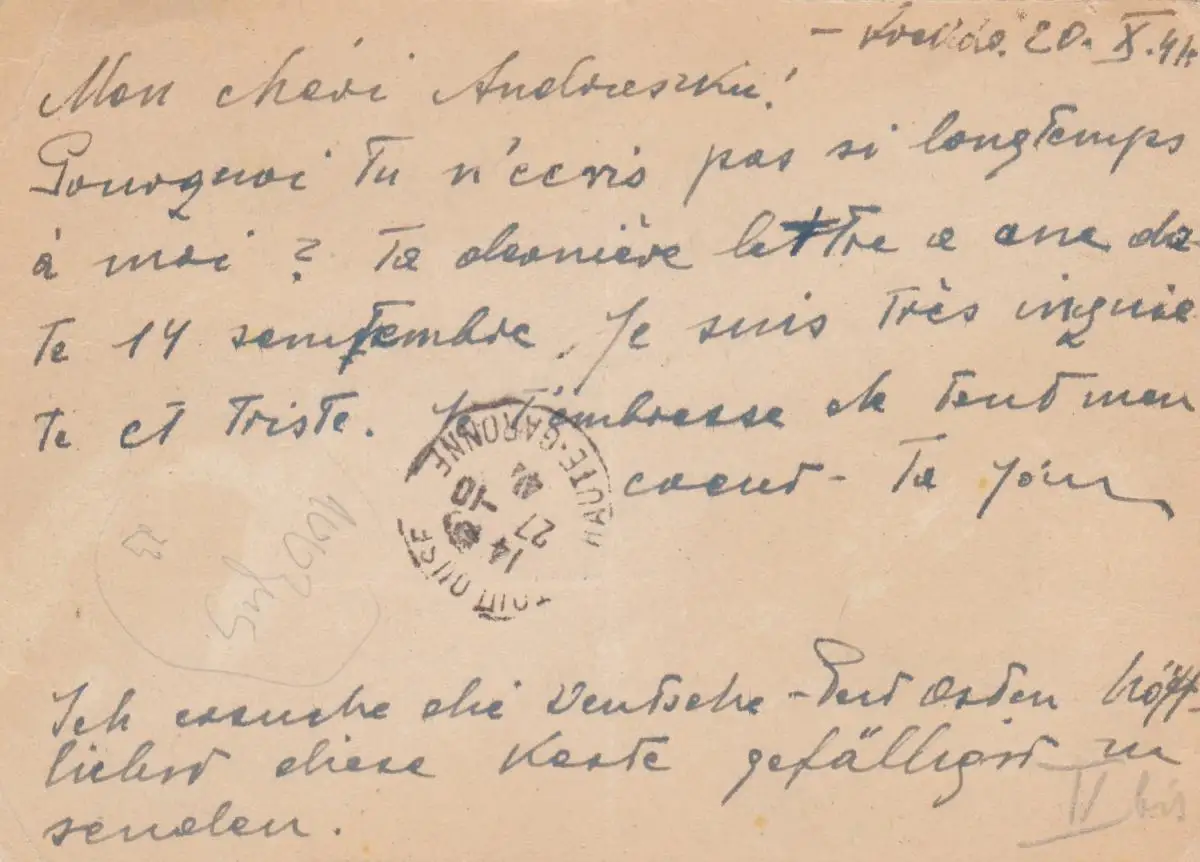 20. X. 41.
Mon chéri Andreszku!
Pourquoi tu n'ecris pas si longtemps
à moi? Ta dernière lettre a une da
te 14 semtembre. Je suis très inquie
te et triste. Je t'embrasse de tout mon
coeur - Ta
HAUTE-GARONNE
TOULOUSE
14
27
10
41
Ich ersuche die Deutsche-Post Osten höff-
lichst diese Karte gefälligst zu
senden.
IV bis